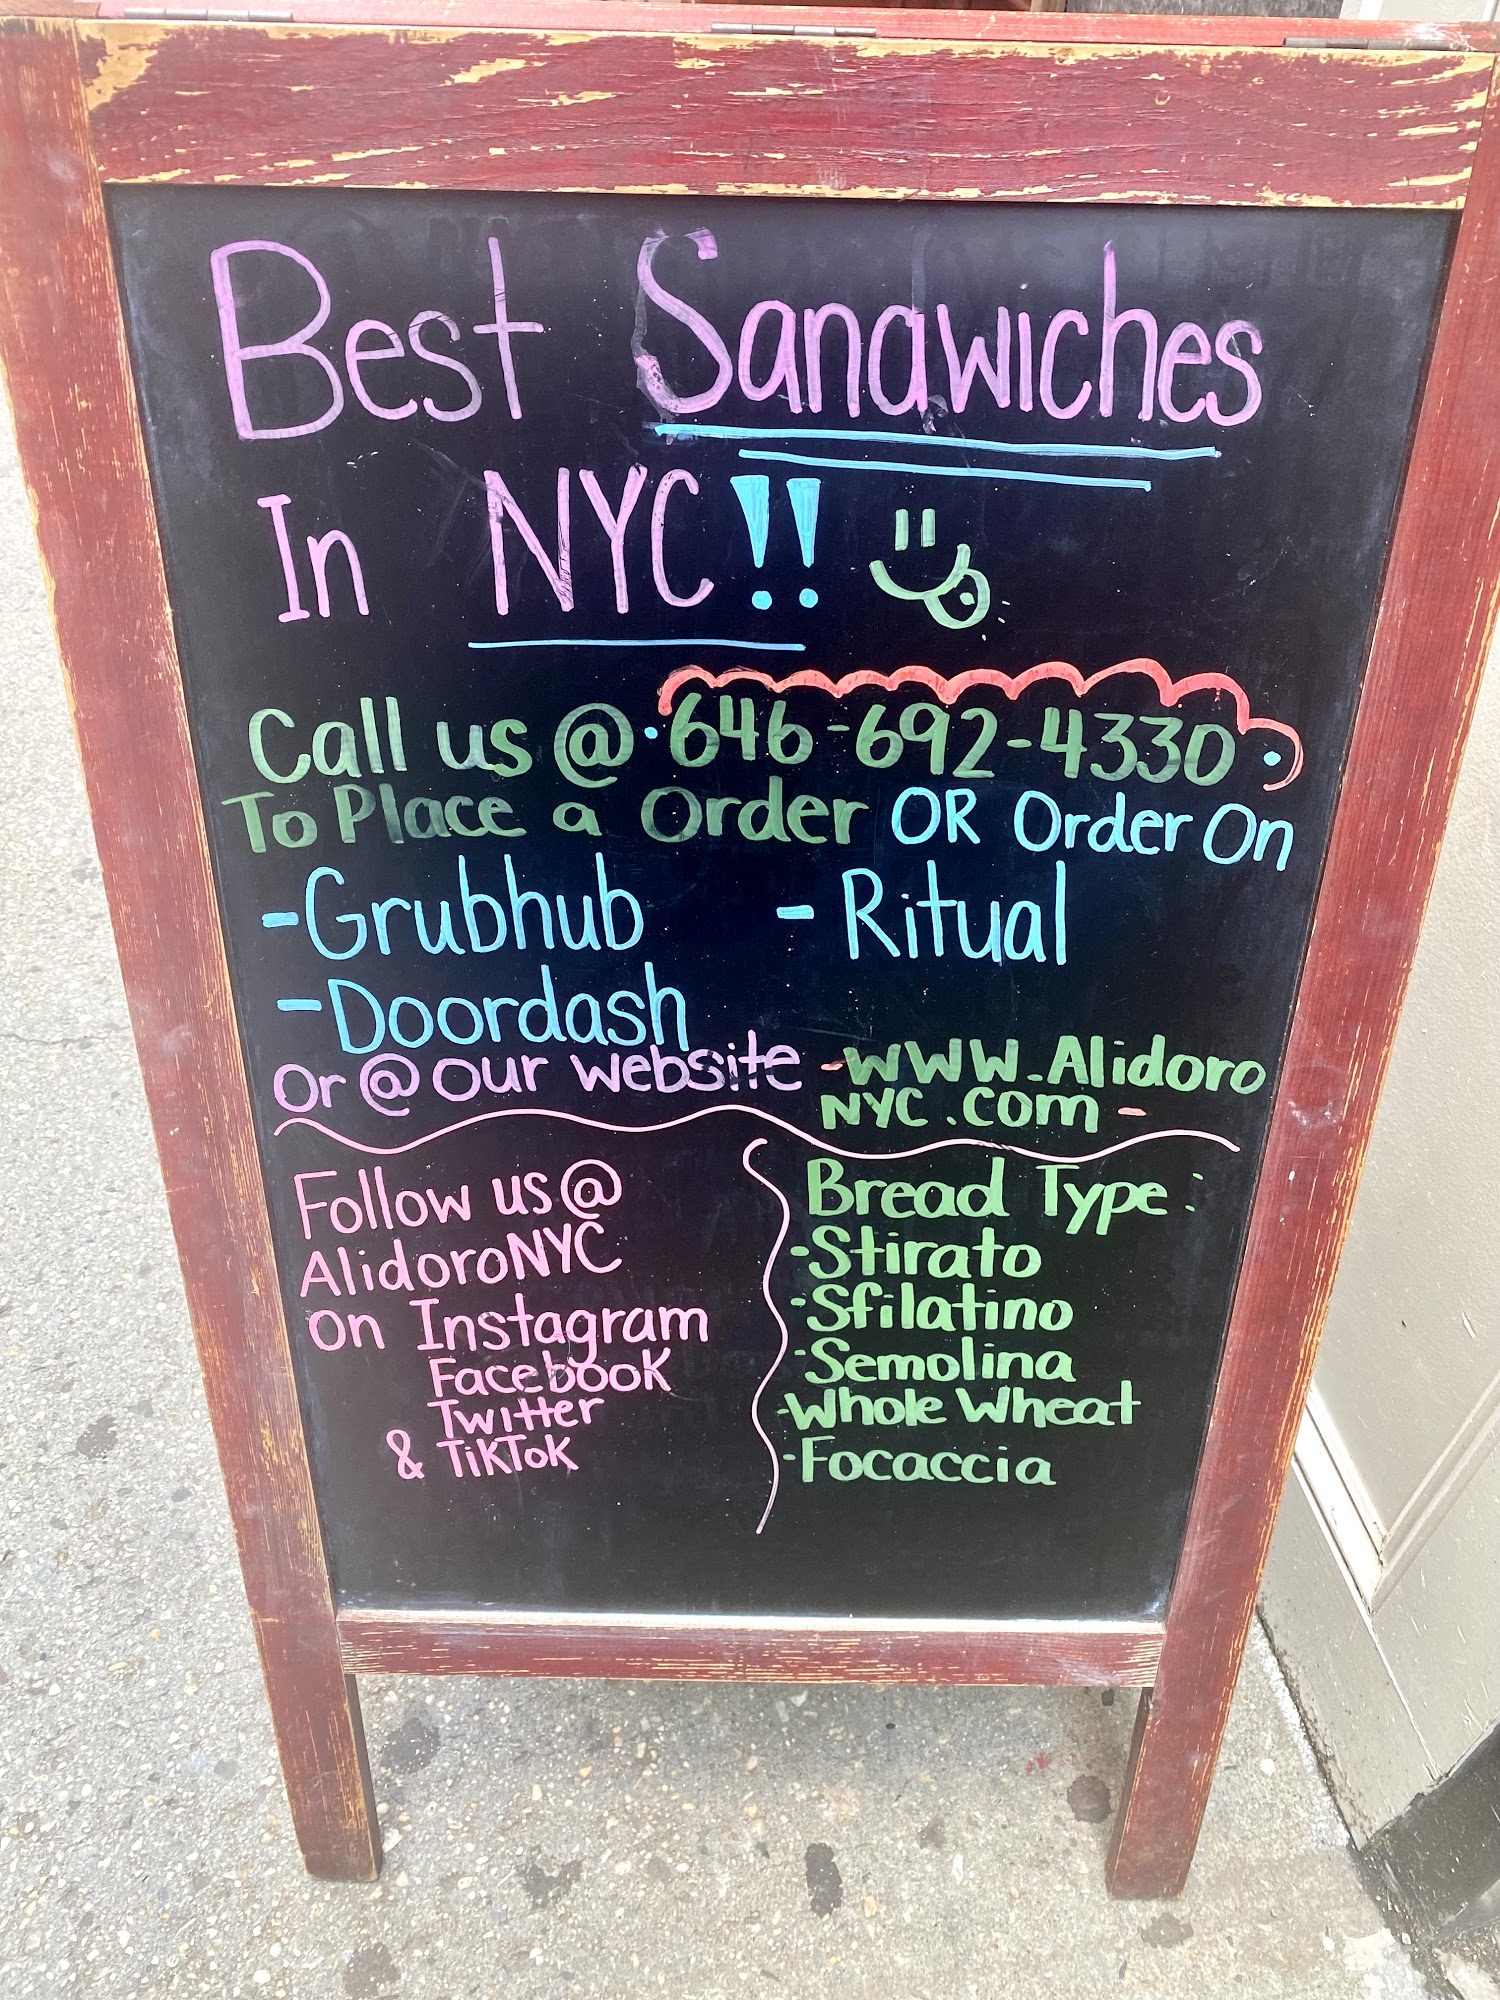 Best Sandwiches
In NYC!!
Call us @ 646-692-4330
To Place a Order OR Order On
-Grubhub
- Ritual
-Doordash
Or @ our website -WWW.Alidoro
NYC.com-
Follow us @
AlidoroNYC
On Instagram
Facebook
Twitter
& TikTok
Bread Type:
-Stirato
-Sfilatino
-Semolina
-Whole Wheat
-Focaccia